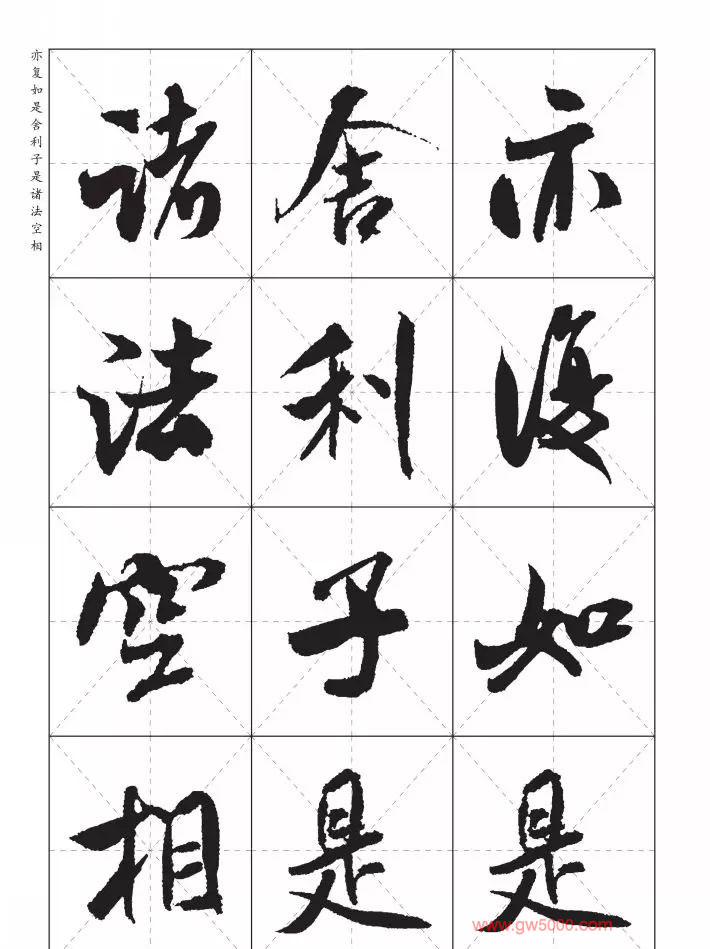 亦复如是舍利子是诸法空相
亦復如是
舍利子是
诸法空相
www.gw5000.com